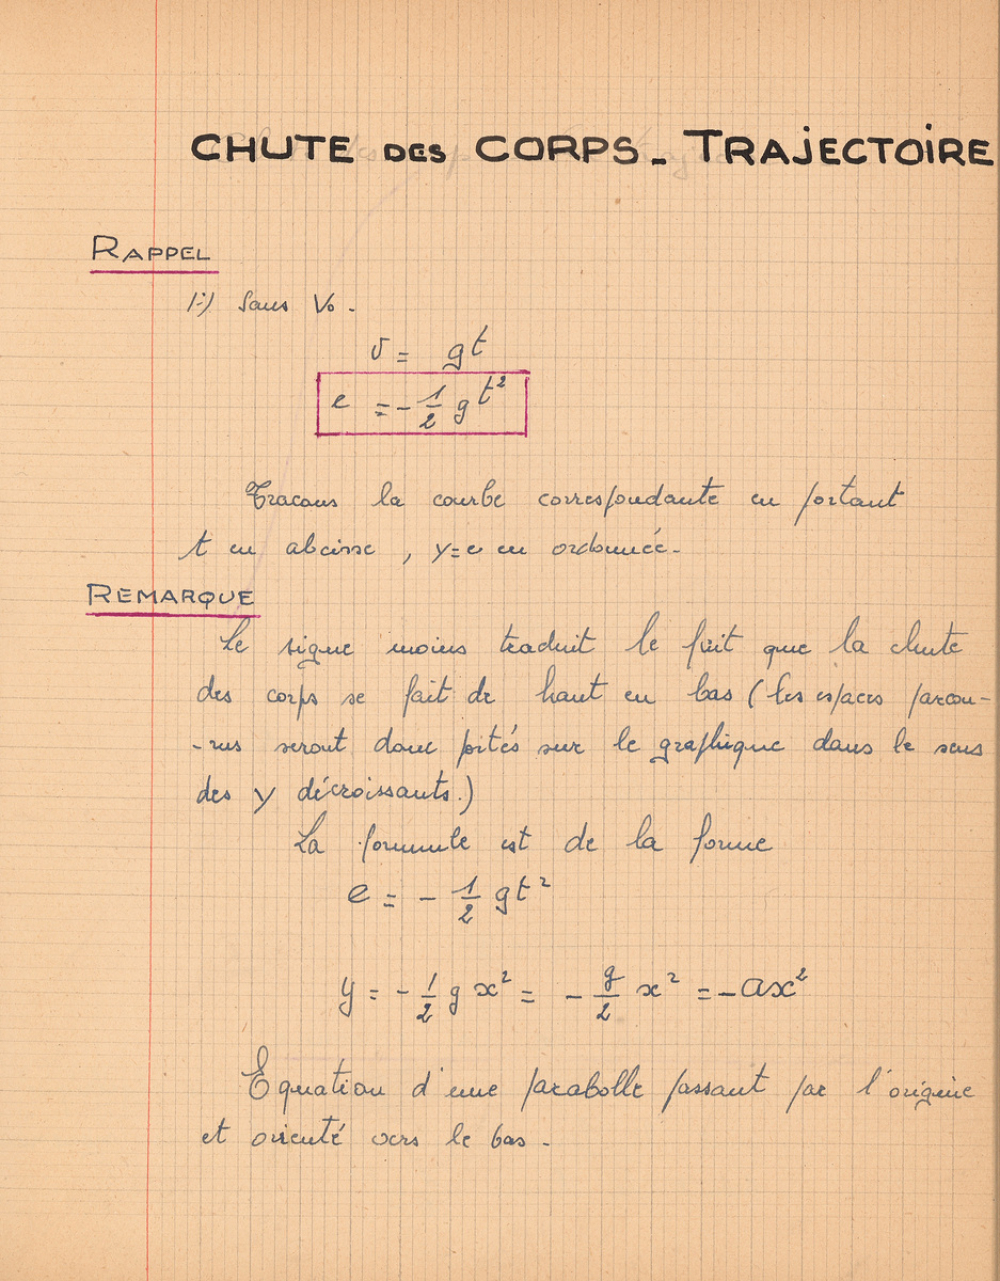 CHUTE DES CORPS - TRAJECTOIRE
RAPPEL
1:) Sans Vo.
v = gt
e = - 1/2 g t²
Tracons la courbe correspondante en portant
t en abcisse, y=e en ordonnée.
REMARQUE
Le signe moins traduit le fait que la chute
des corps se fait de haut en bas (les espaces parcou-
-rus seront donc portés sur le graphique dans le sens
des y décroissants.)
La formule est de la forme
e = - 1/2 gt²
y = - 1/2 g x² = - g/2 x² = - ax²
Equation d'une parabolle passant par l'origine
et orienté vers le bas.